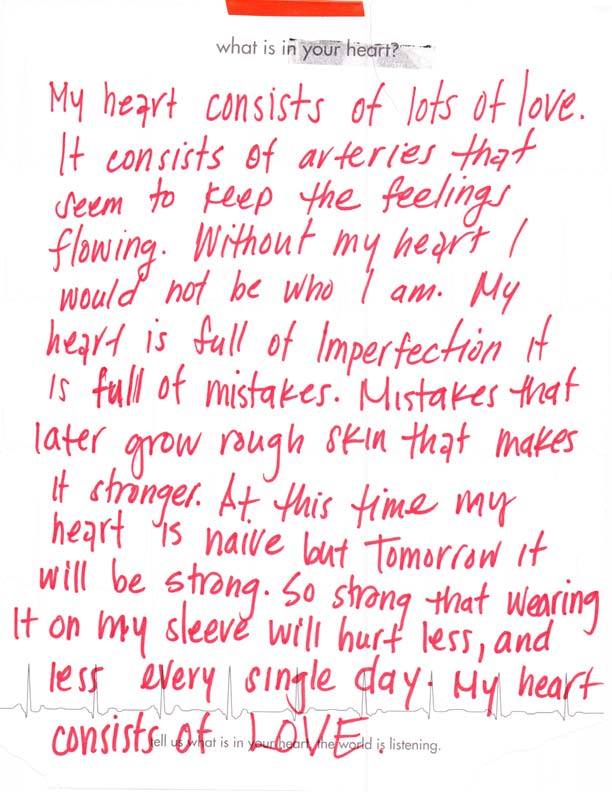 what is in your heart?
My heart consists of lots of love.
It consists of arteries that
seem to keep the feelings
flowing. Without my heart I
would not be who I am. My
heart is full of Imperfection it
is full of mistakes. Mistakes that
later grow rough skin that makes
it stronger. At this time my
heart is naive but Tomorrow it
will be strong. So strong that wearing
It on my sleeve will hurt less, and
less every single day. My heart
consists of LOVE.
tell us what is in your heart, the world is listening.